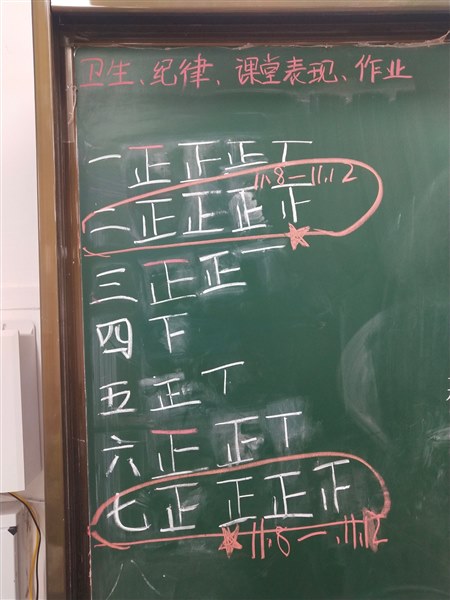 卫生、纪律、课堂表现、作业
一 正 正 正 丅
11.8—11.12
二 正 正 正 正
三 正 正 一
四 下
五 正 丅
六 正 正 丅
七 正 正 正 正
11.8—11.12
八